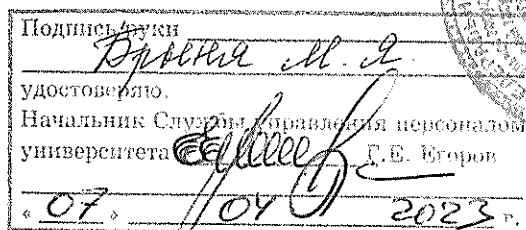 Подпись руки
Брыня М. Я.
удостоверяю.
Начальник Службы управления персоналом
университета Г.Е. Егоров
« 07 » 04 2023 г.